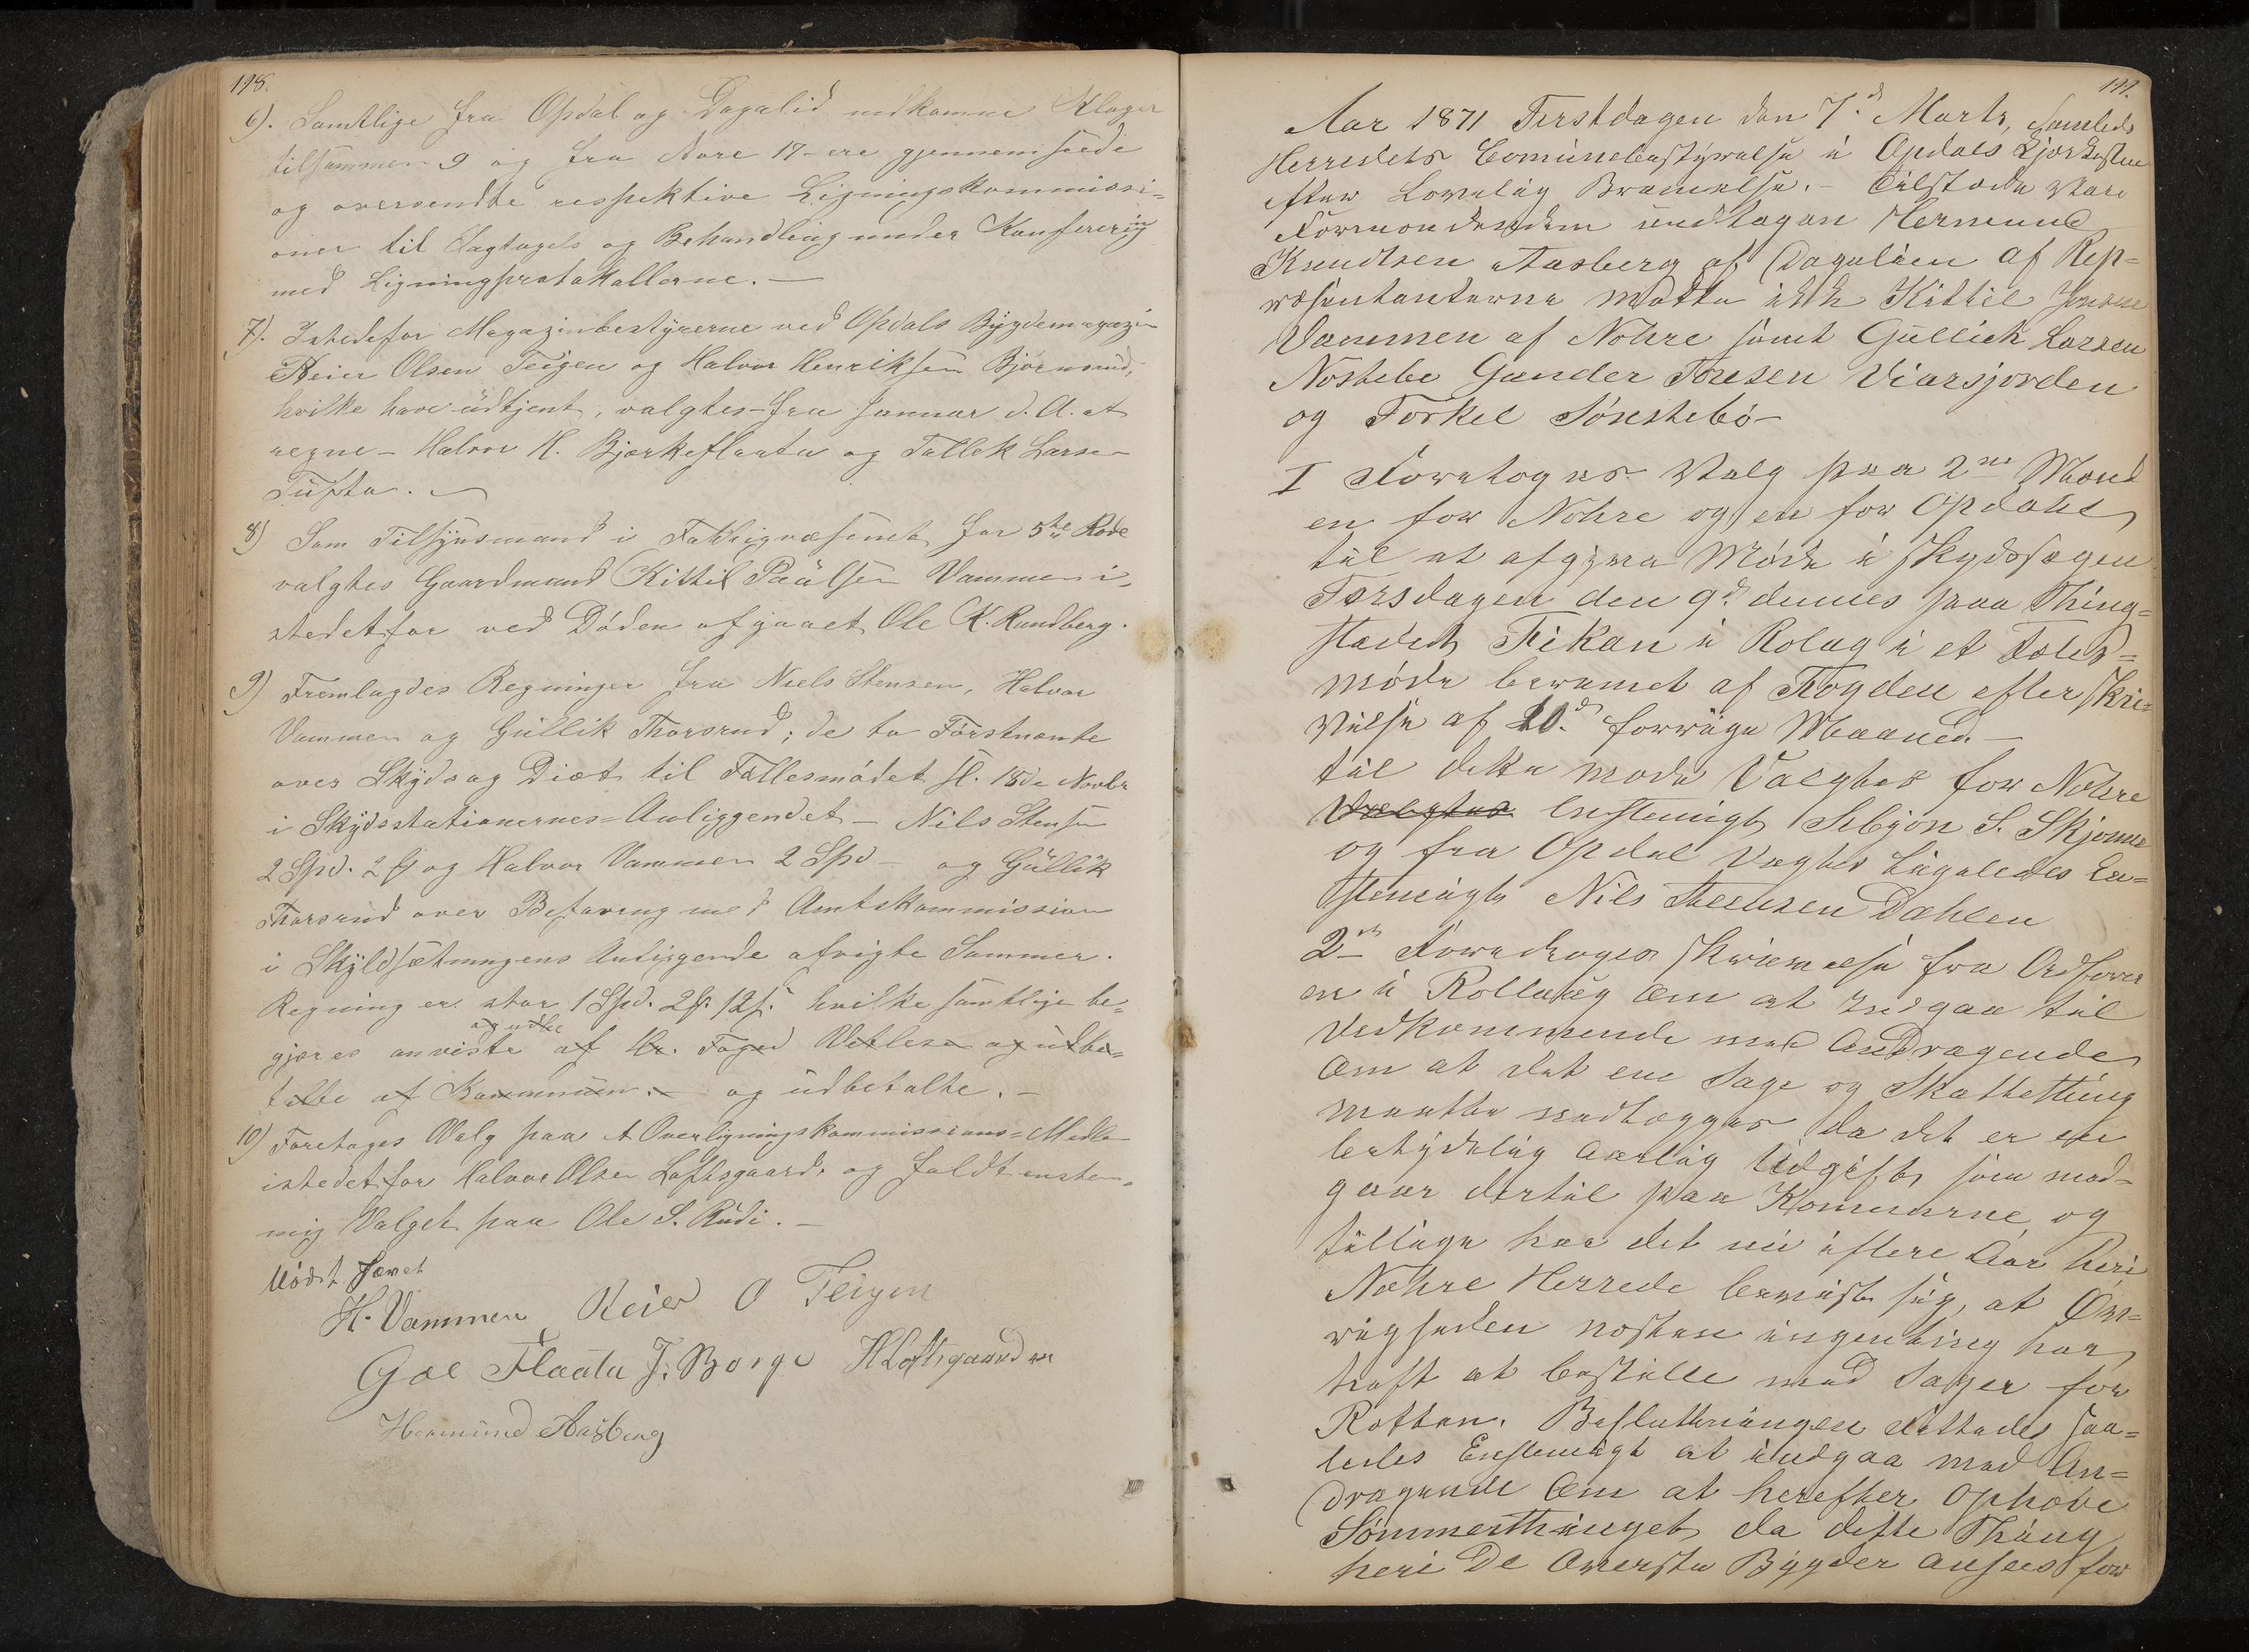 198.
6). Samtlige fra Opdal og Dagalid indkomne Klager
tilsammen 9 og fra Nore 17-ere gjennemseede
og oversendte respektive Ligningskommissi=
oner til Iagtagels og Behandling under Konferering
med Ligningsprotokollerne. —
7). Istedefor Magazinbestyrerne ved Opdals Bygdemagazin
Reier Olsen Teigen og Halvor Henriksen Bjørnsrud,
hvilke have udtjent, valgtes fra Januar d. A. at
regne — Halvor H. Bjørkeflaata og Tollek Larsen
Tufta. —
8) Som Tilsynsmand i Fattigvæsenet for 5te Rode
valgtes Gaardmand Kittil Paulsen Vammen i=
stedetfor ved Døden afgaaet Ole K. Rundberg.
9) Fremlagdes Regninger fra Niels Stensen, Halvor
Vammen og Gullik Thorsrud; de to Førstnævnte
over Skyds og Diæt til Fællesmødet sl. 18de Novbr
i Skydsstationernes Anliggendet — Nils Stensen
2 Spd. 2 ₰ og Halvor Vammen 2 Spd — og Gullik
Thorsrud over Befaring med Amtskommission
i Skyldsætningens Anliggende afvigte Sommer.
Regning er stor 1 Spd. 2 ₰. 12 s. hvilke samtlige be=
gjæres anviste af Hr. Foged Vetlesen og udbe=
talte af Kommunen. — og udbetalte. —
10) Foretages Valg paa et Overligningskommissions=Medlem
istedetfor Halvor Olsen Loftsgaard og faldt enstem=
mig Valget paa Ole S. Rudi. —
Mødet hævet
H. Vammen Reier O Teigen
Gol Flaata J. Borge H Loftsgaarden
Hermund Aasberg
199.
Aar 1871 Tirsdagen den 7.d Marts, samledes
Herredets Comunebestyrelse i Opdals Kjørkestue
efter Lovelig Beramelse. — Tilstæde Vare
Formondskabem undtagen Hermund
Knudtsen Aasberg af Dagalien af Rep=
ræsentanterne møtte ikke Kittil Jonsen
Vammen af Nohre samt Gullich Larsen
Nøstebe Gunder Toresen Viersjorden
og Torkel Sønstebø —
I Foretoges Valg paa 2ne Mænd
en for Nohre og en for Opdahl
til at afgjøra Møde i Skydssagen
Torsdagen den 9.d dennes paa Thing=
stædet Fikan i Rolag i et Fæles=
møde beramet af Fogden efter Skri=
velse af 20.d forrige Maaned —
til dette møde Valgtes for Nohre
Valgtes Enstemigt Sebjøn S. Skjonne
og fra Opdal Valgtes Ligeledes En=
stemigt Nils Steensen Dahlen
2et Foredroges Skrivelse fra Ordfører
en i Rollaug Om at Indgaa til
Vedkommende med Andragende
Om at det ene Sage og Skattething
maatte nedlægges da det er en
betydelig Aarlig Udgift som med=
gaar dertil paa Komunerne og
tillige har det nu i flere Aar heri
Nohre Herrede bevist sig, at Øv=
righeden nøsten ingenting har
haft at bestille med Sager for
Retten. Beslutteningen fattedes saa=
ledes Enstemigt at indgaa med An=
dragende Om at herefter Ophøve
Sommerthinget da dette Thing
heri De Øverste Bygder ansees for